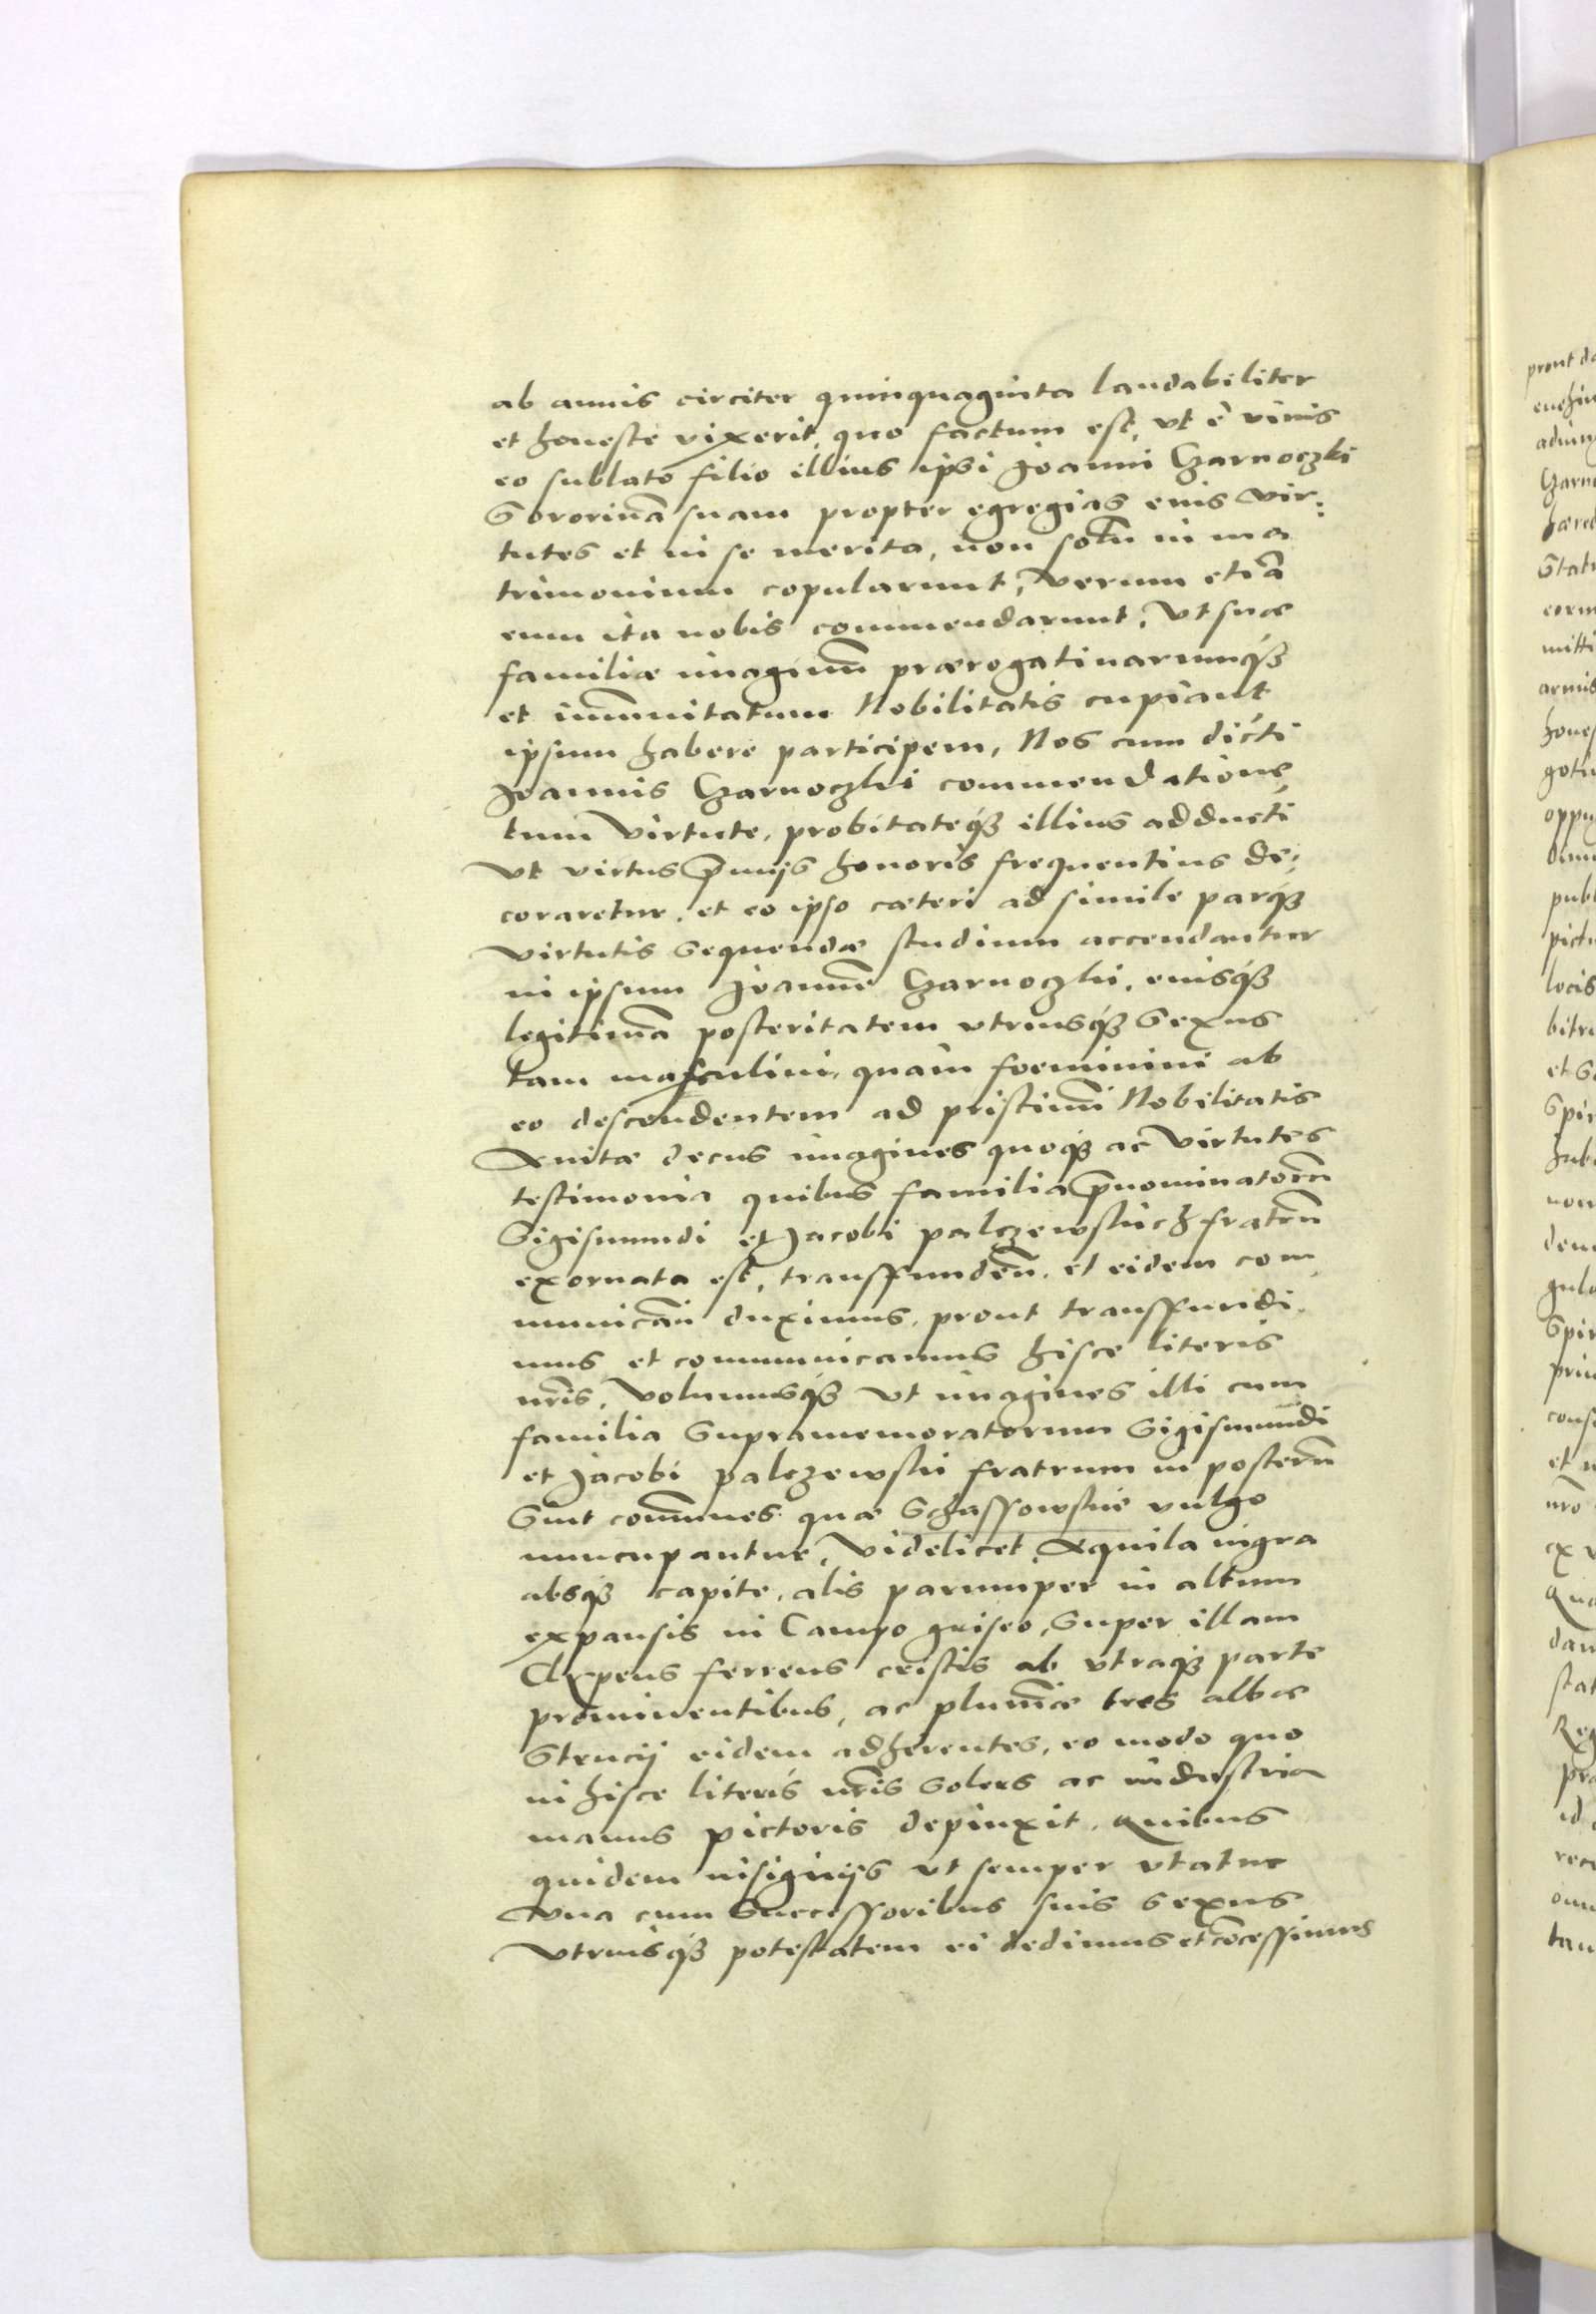 ab annis circiter quinquaginta laudabiliter
et honeste vixerit, quo factum est, vt è viuis
eo sublato filio illius ipsi Joanni Czarnoczki
Sororinā suam propter egregias eius vir:
tutes et in se merita, non solū in ma
trimonium copularunt, verum etiā
eum ita nobis commendarunt, vt suæ
familiæ imaginū prærogatiuarumq3
et im̄unitatum Nobilitatis cupiant
ipsum habere participem, Nos cum dicti
Joannis Czarnoczki commendatione,
tum virtute, probitateq3 illius adducti
vt virtus p̄mijs honoris frequentius de:
coraretur, et eo ipso cæteri ad simile parq3
virtutis sequendæ studium accendantur
in ipsum Joannē Czarnoczki, eiusq3
legitimā posteritatem vtriusq3 Sexus
tam masculini, quàm foeminini ab
eo descendentem ad pristinū Nobilitatis
Auitæ decus imagines quoq3 ac virtutes
testimonia quibus familia p̄nominatorū
Sigismundi et Jacobi palczewskich fratrū
exornata est, transfundēn. et eidem com
municān duximus, prout transfundi
mus et communicamus hisce literis
nr̄is, volumusq3 vt imagines illi cum
familia Supramemoratorum Sigismundi
et Jacobi palczewski fratrum in posterū
Sint com̄unes quæ Schassowskie vulgo
nuncupantur, videlicet Aquila nigra
absq3 capite, alis parumper in altum
expansis in Campo griseo, Super illam
Clypeus ferreus cristis ab vtraq3 parte
prominentibus, ac plum̄æ tres albæ
Strucij eidem adherentes, eo modo quo
in hisce literis nr̄is Solers ac industria
manus pictoris depinxit, Quibus
quidem insignijs vt semper vtatur
vna cum Successoribus suis sexus
vtriusq3 potestatem ei dedimus et cōcessimus